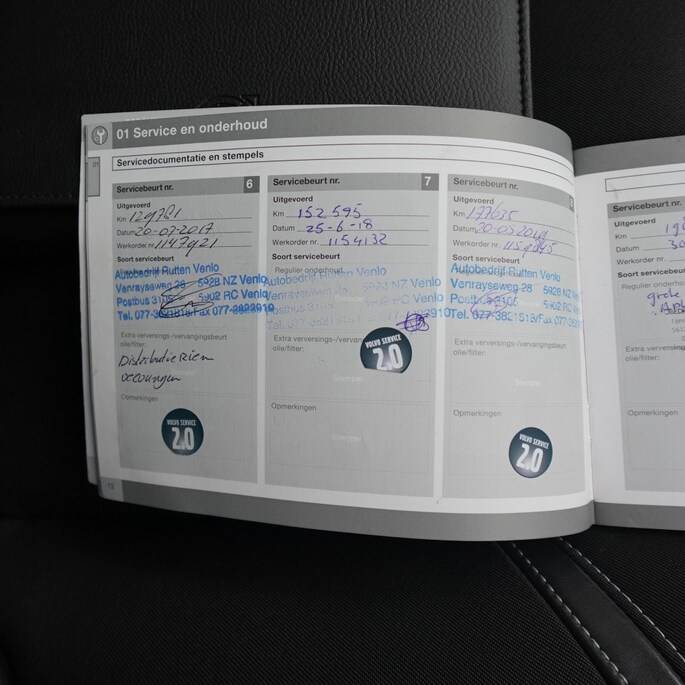 01 Service en onderhoud
01
Servicedocumentatie en stempels
Servicebeurt nr. 6
Uitgevoerd
Km 129781
Datum 20-07-2017
Werkorder nr. 1147921
Soort servicebeurt
Autobedrijf Rutten Venlo
Venrayseweg 28 5928 NZ Venlo
Postbus 3105 5902 RC Venlo
Tel. 077-3821818/Fax 077-3823910
Extra verversings-/vervangingsbeurt
olie/filter:
Distributieriem
Opmerkingen
VOLVO SERVICE
2.0
Servicebeurt nr. 7
Uitgevoerd
Km 152 595
Datum 25-6-18
Werkorder nr. 1154132
Soort servicebeurt
Regulier onderhoud
Autobedrijf Rutten Venlo
Venrayseweg 28 5928 NZ Venlo
5902 RC Venlo
Extra verversings-/vervangingsbeurt
olie/filter:
Opmerkingen
VOLVO SERVICE
2.0
Servicebeurt nr.
Uitgevoerd
Km 177635
Datum
Werkorder nr.
Soort servicebeurt
Autobedrijf Rutten Venlo
Venrayseweg 28 5928 NZ
Postbus 3105 5902 RC
Tel. 077-3821818/Fax 077
Extra verversings-/vervangingsbeurt
olie/filter:
Opmerkingen
VOLVO SERVICE
2.0
12
Servicebeurt nr.
Uitgevoerd
Km
Datum 30
Werkorder nr.
Soort servicebeurt
Regulier onderhoud
grote
Extra verversings-
olie/filter:
Opmerkingen